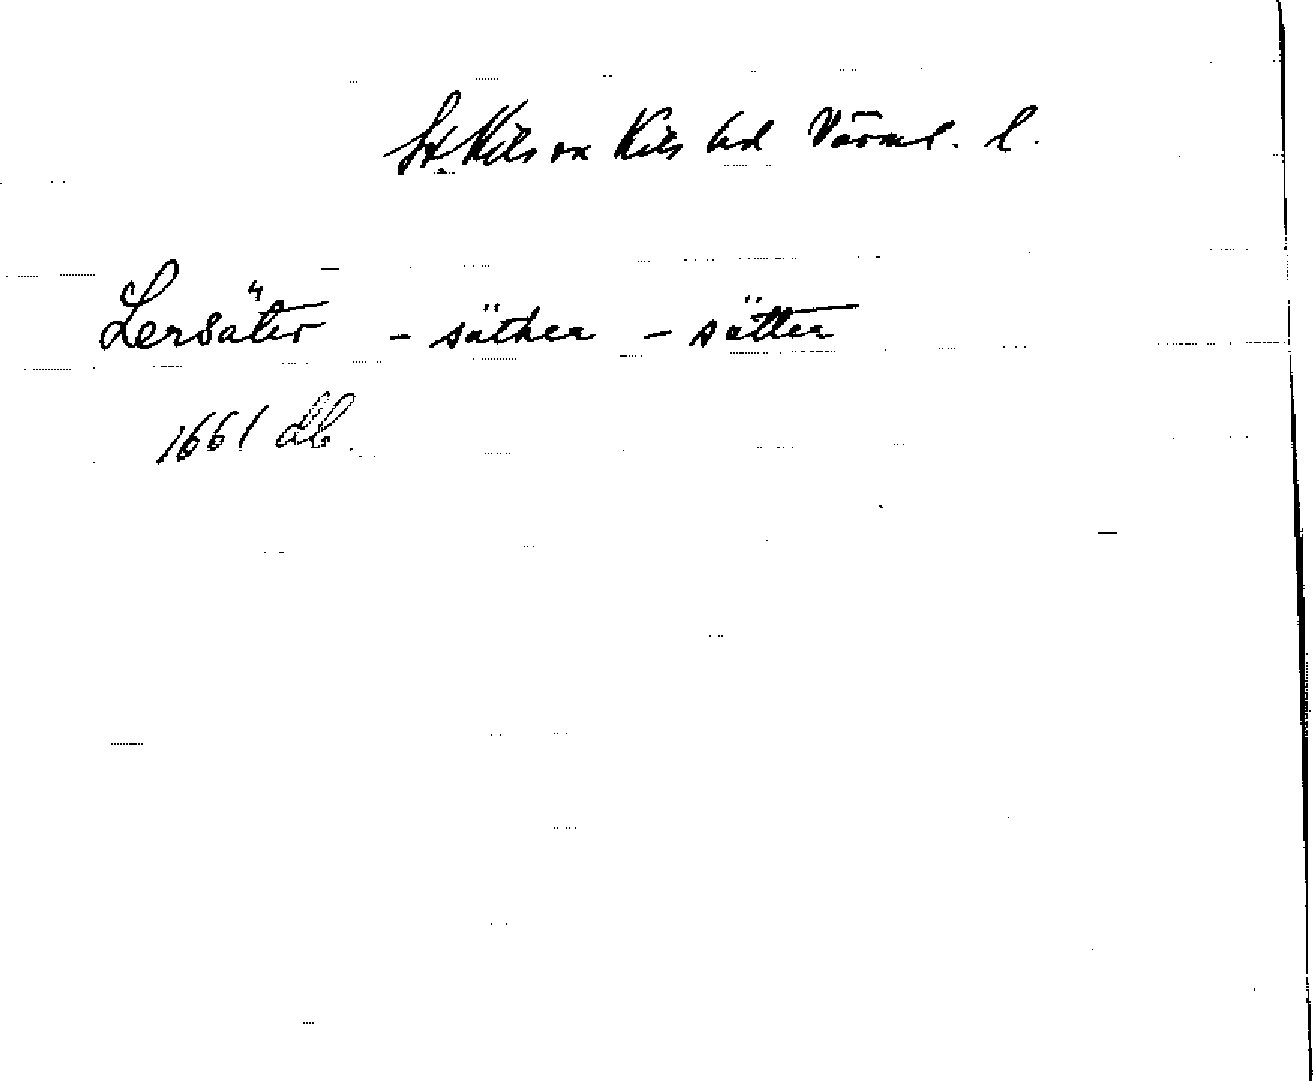 St. Kils sn Kils hd Värml. l.
Lersäter - säther - sätter
1661 Lb.